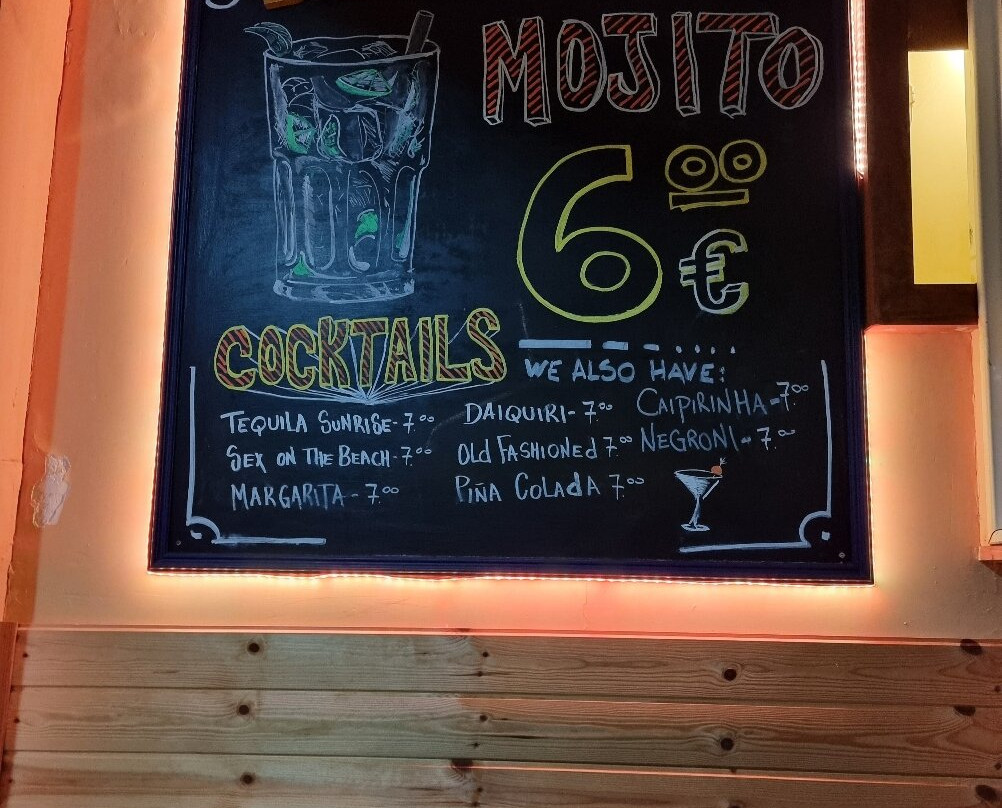 MOJITO
6.00 €
COCKTAILS
WE ALSO HAVE:
TEQUILA SUNRISE-7.00
SEX ON THE BEACH-7.00
MARGARITA-7.00
DAIQUIRI-7.00
Old FASHIONEd 7.00
PIÑA COLAdA 7.00
CAIPIRINHA-7.00
NEGRONI-7.00